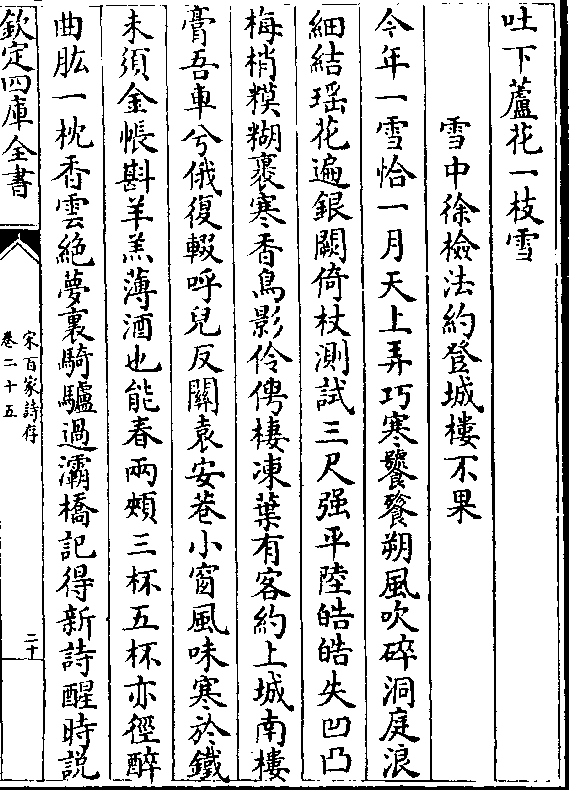 吐下蘆花一枝雪
雪中徐檢法約登城樓不果
今年一雪恰一月天上弄巧寒饕餮朔風吹碎洞庭浪
細結瑶花遍銀闕倚杖測試三尺强平陸皓皓失凹凸
梅梢糢糊裹寒香鳥影伶俜棲凍葉有客約上城南樓
膏吾車兮俄復輟呼兒反關袁安巷小窗風味寒於鐵
未須金帳斟羊羔薄酒也能春兩頰三杯五杯亦徑醉
曲肱一枕香雲絶夢裏騎驢過灞橋記得新詩醒時説
欽定四庫全書
宋百家詩存
卷二十五
二十